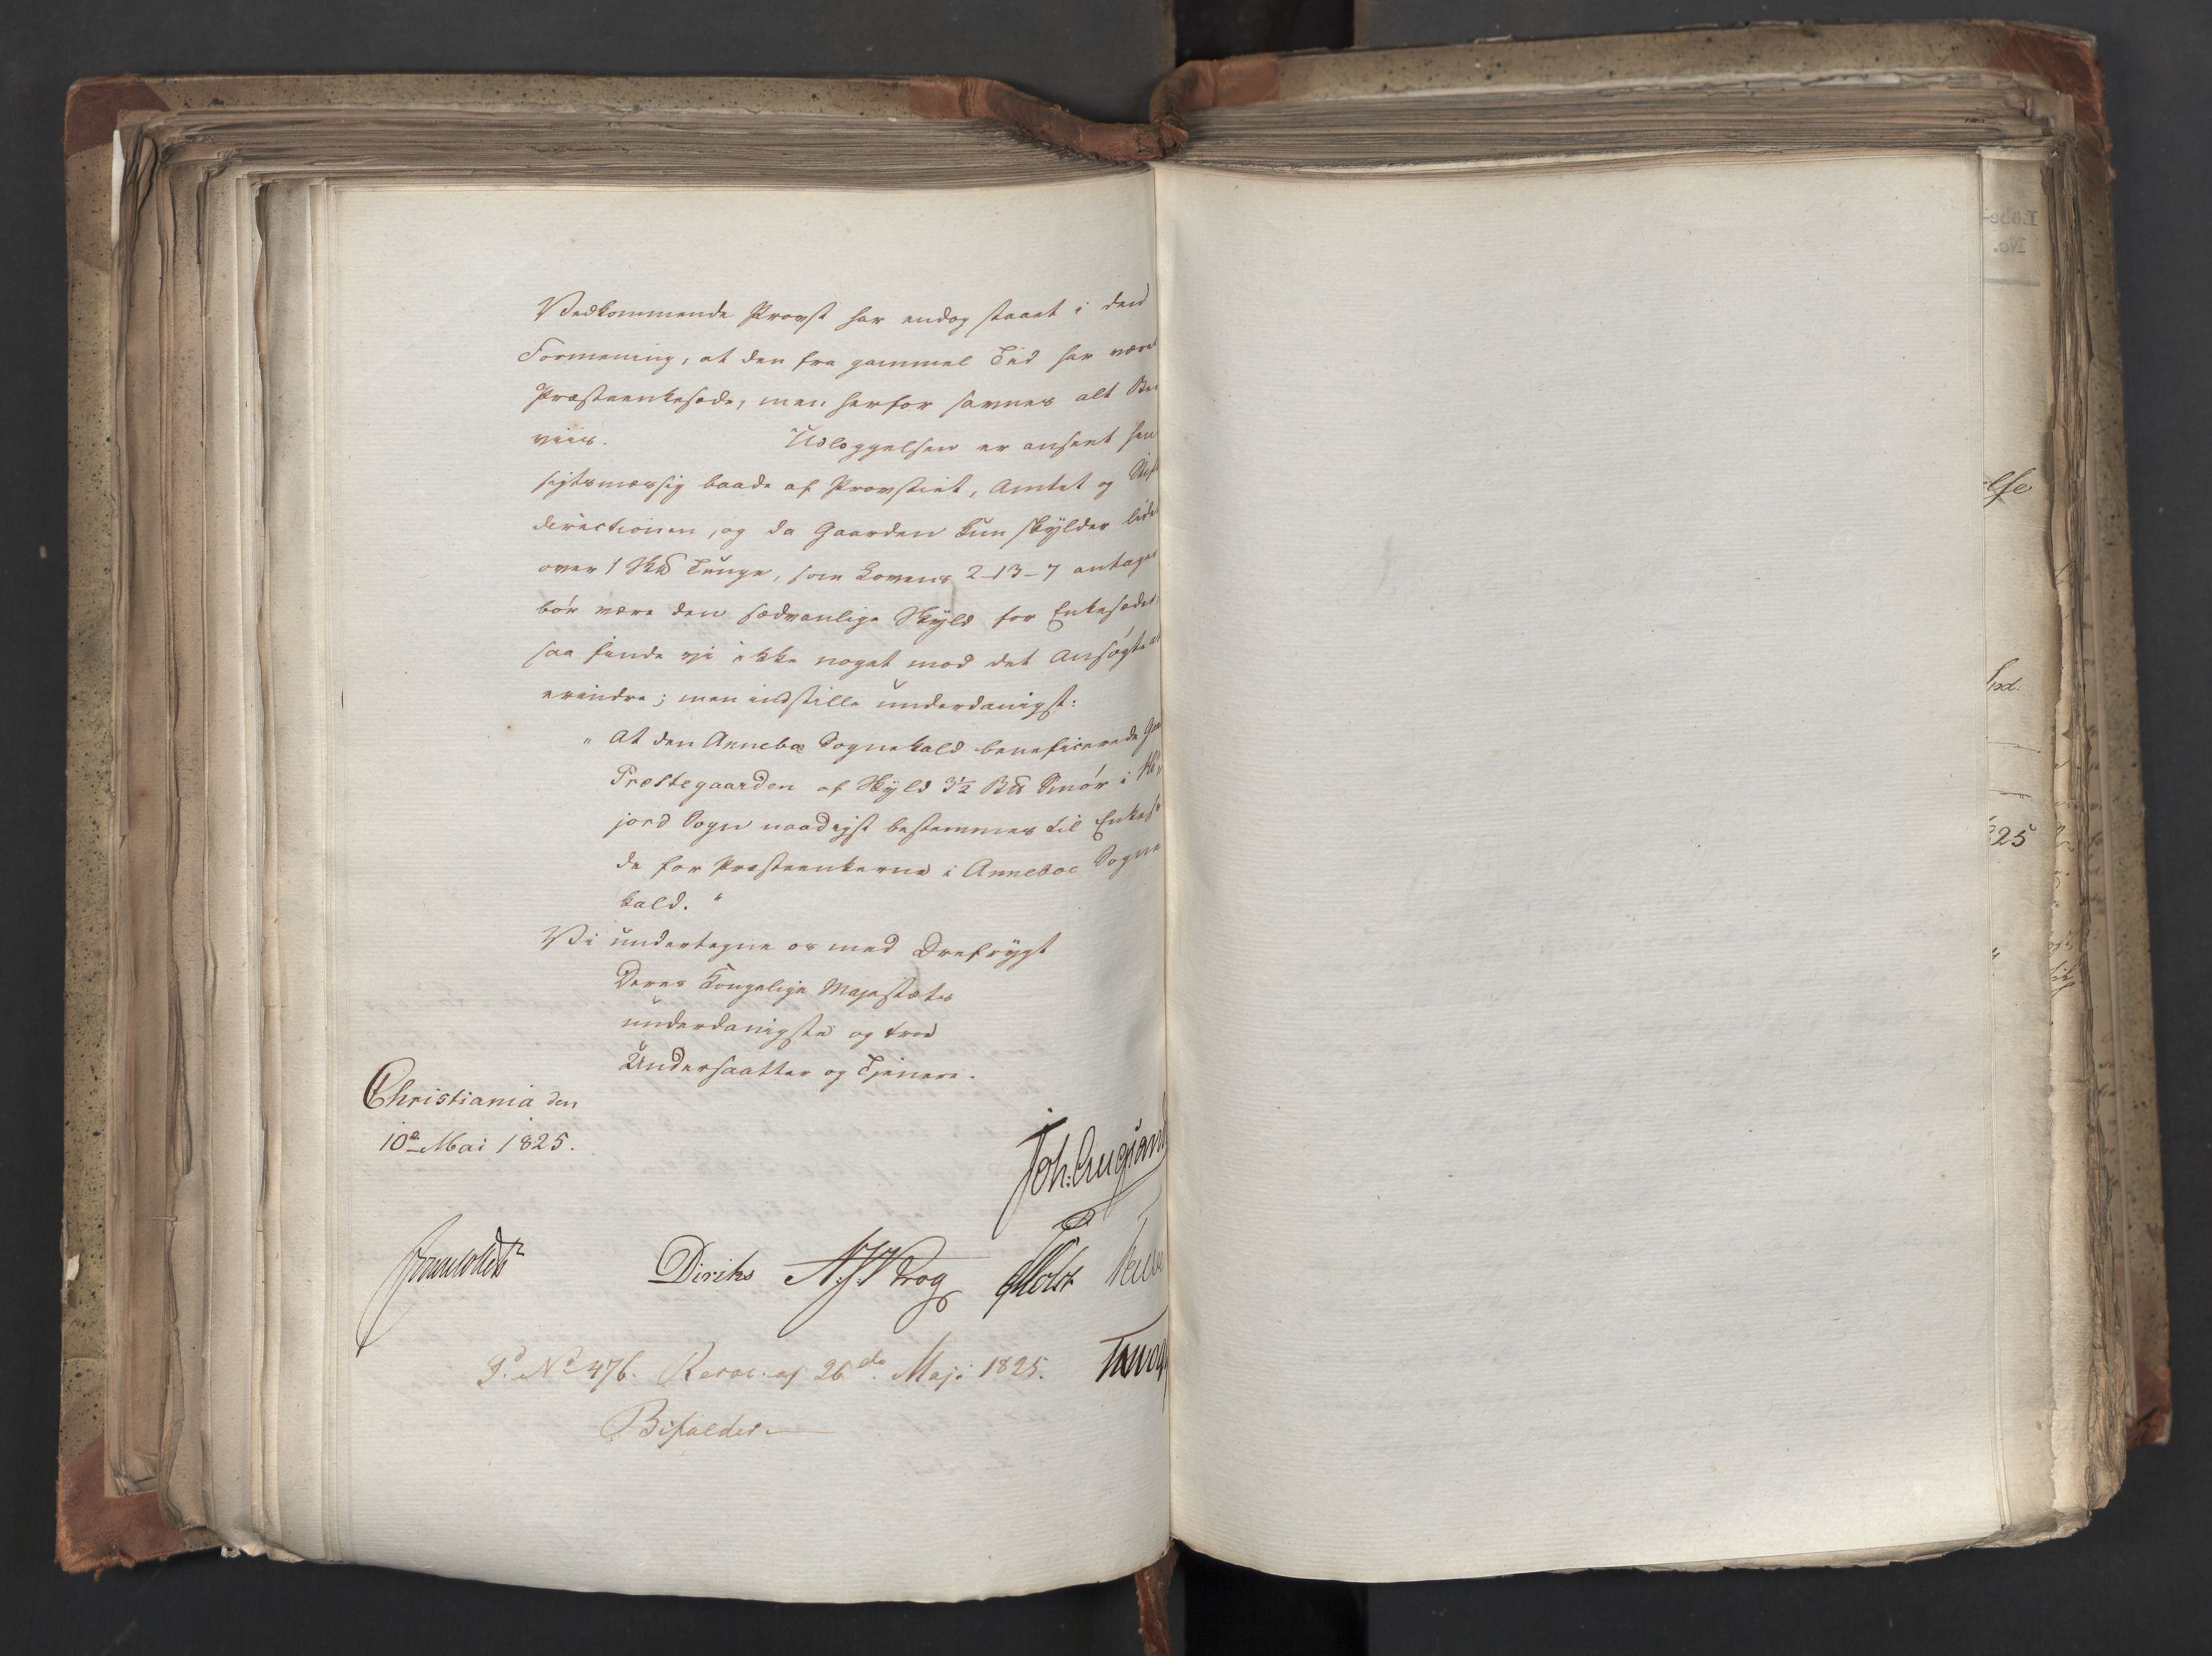 Vedkommende Provst har endog staaet i den
Formening, at den fra gammel Tid har været
Præsteenkesæde, men herfor savnes alt Be
viis. Udlæggelsen er anseet hen
sigtsmæssig baade af Provstiet, Amtet og Stift
directionen, og da Gaarden kun skylder lidet
over 1 Sk℔ Tunge, som Lovens 2-13-7 antager
bör være den sædvanlige Skyld for Enkesæder,
saa finde vi ikke noget mod det Ansögte at
erindre; men indstille underdanigst:
" At den Annebøe Sognekald beneficerede
Præstegaarden af Skyld 3½ B℔ Smör i
jord Sogn naadigst bestemmes til Enkesæ
de for Præsteenkerne i Annebøe Sogne
kald. "
Vi undertegne os med Ærefrygt
Deres Kongelige Majestæts
underdanigste og troe
Undersaatter og Tjenere.
Christiania den
10e Mai 1825.
Diriks Krog Holst
Jd. No 476. Resol. af 26de Maji 1825.
Bifaldes
else
825
Löbe-
No.